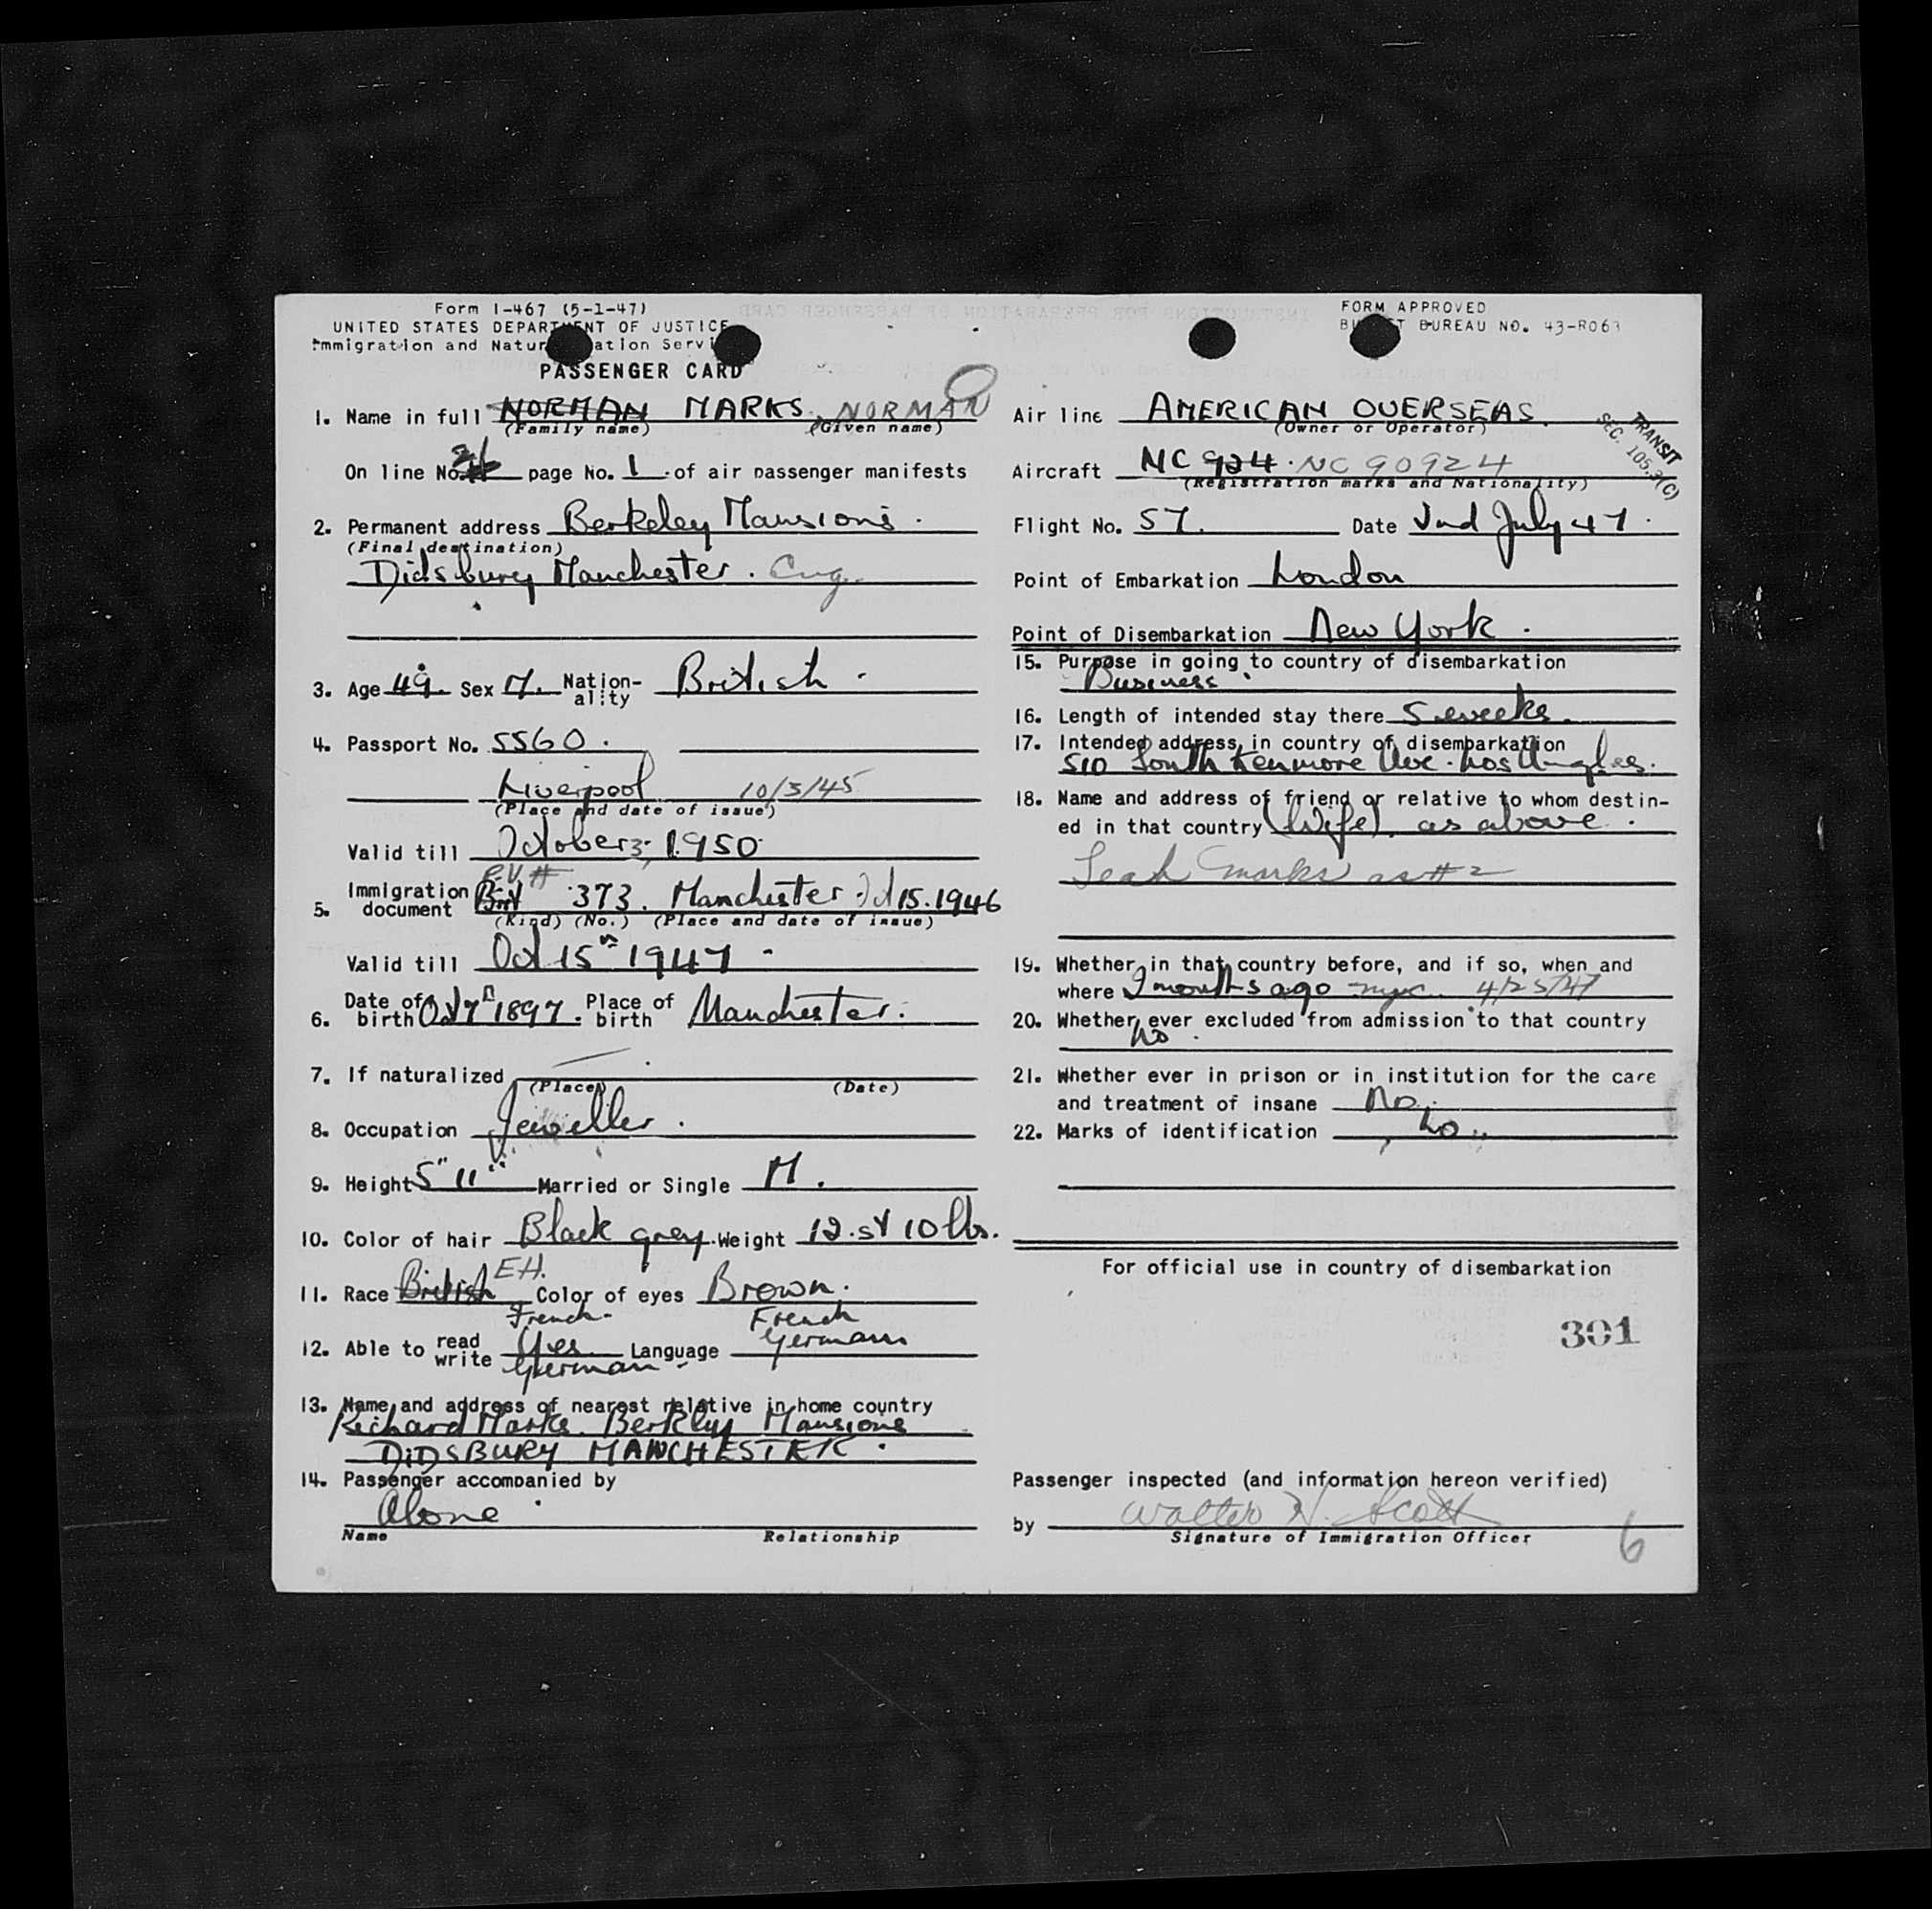 Form I-467 (5-1-47)
UNITED STATES DEPARTMENT OF JUSTICE
Immigration and Naturalization Servi
PASSENGER CARD
1. Name in full NORMAN MARKS, NORMAN
(Family name) (Given name)
On line No. 26 page No. 1 of air passenger manifests
2. Permanent address Berkeley Mansions.
(Final destination)
Didsbury Manchester. Eng.
3. Age 49. Sex M. Nation-ality British.
4. Passport No. 5560.
Liverpool 10/3/45
(Place and date of issue)
Valid till October 3, 1950
P.V.#
5. Immigration document 373. Manchester Oct 15. 1946
(Kind) (No.) (Place and date of issue)
Valid till Oct 15th 1947 -
6. Date of birth Oct 7th 1897. Place of birth Manchester.
7. If naturalized
(Place) (Date)
8. Occupation Jeweller.
9. Height 5" 11" Married or Single M.
10. Color of hair Black grey. Weight 12. st 10 lbs.
11. Race British E.H. Color of eyes Brown.
French- French
12. Able to read write Yes Language German
German-
13. Name and address of nearest relative in home country
Richard Marks. Berkley Mansions
DIDSBURY MANCHESTER.
14. Passenger accompanied by
Alone
Name Relationship
FORM APPROVED
BU T BUREAU NO. 43-R063
Air line AMERICAN OVERSEAS.
(Owner or Operator)
TRANSIT
SEC. 105.3(C)
Aircraft NC 924. NC 90924
(Registration marks and Nationality)
Flight No. 57. Date 2nd July 47.
Point of Embarkation London
Point of Disembarkation New York.
15. Purpose in going to country of disembarkation
Business.
16. Length of intended stay there 5 weeks.
17. Intended address in country of disembarkation
510 South Kenmore Ave. Los Angles.
18. Name and address of friend or relative to whom destin-
ed in that country (Wife). as above.
Leah Marks as # 2
19. Whether in that country before, and if so, when and
where 2 months ago nyc. 4/25/47
20. Whether ever excluded from admission to that country
No.
21. Whether ever in prison or in institution for the care
and treatment of insane No.
22. Marks of identification No.
For official use in country of disembarkation
301
Passenger inspected (and information hereon verified)
by Walter N. Scott
Signature of Immigration Officer
6